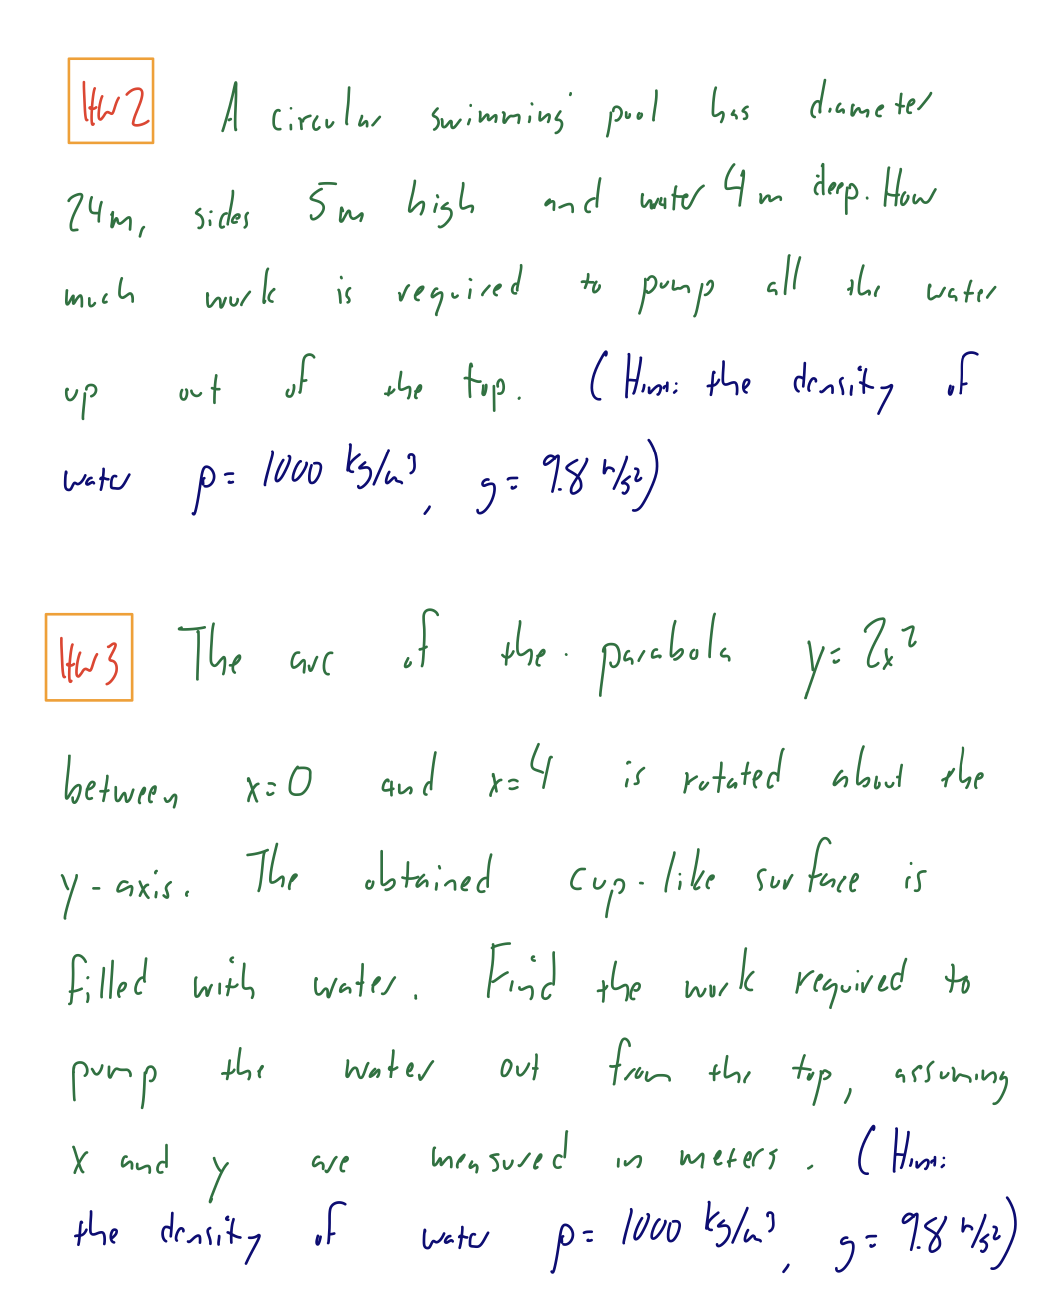 Hw2 A circular swimming pool has diameter
24m, sides 5m high and water 4m deep. How
much work is required to pump all the water
up out of the top. (Hint: the density of
water ρ= 1000 kg/m³, g= 9.8 m/s²)
Hw3 The arc of the parabola y= 2x²
between x=0 and x=4 is rotated about the
y-axis. The obtained cup-like surface is
filled with water. Find the work required to
pump the water out from the top, assuming
x and y are measured in meters. (Hint:
the density of water ρ= 1000 kg/m³, g= 9.8 m/s²)